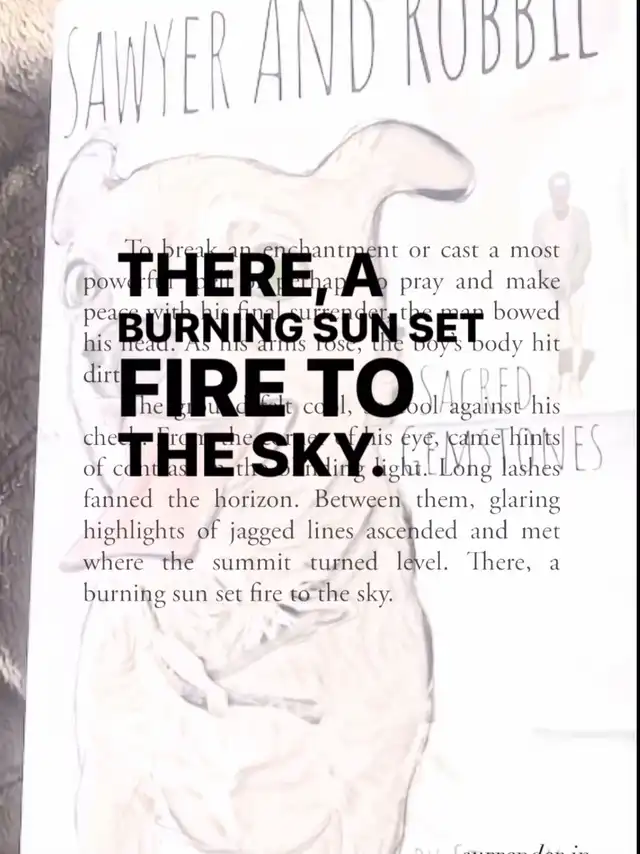 SAWYER AND ROBBIE
To break an enchantment or cast a most
pray and make
peace with his final surrender, the man bowed
his head. As his arms rose, the boy's body hit
dirt
THERE, A
BURNING SUN SET
FIRE TO
THE SKY.
SACRED
GEMSTONES
The ground felt cool, cool against his
cheek. From the corner of his eye, came hints
of contrast in the blinding light. Long lashes
fanned the horizon. Between them, glaring
highlights of jagged lines ascended and met
where the summit turned level. There, a
burning sun set fire to the sky.
surrender in